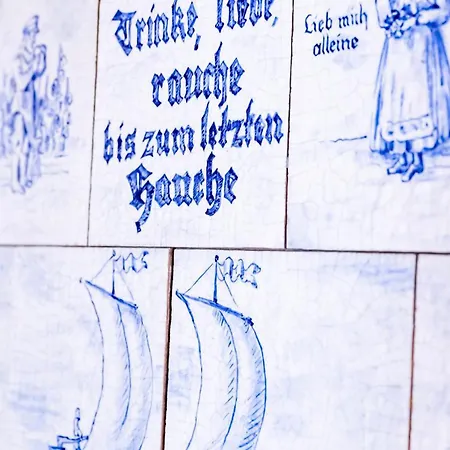 Trinke, liebe,
rauche
bis zum letzten
Hauche
Lieb mich
alleine